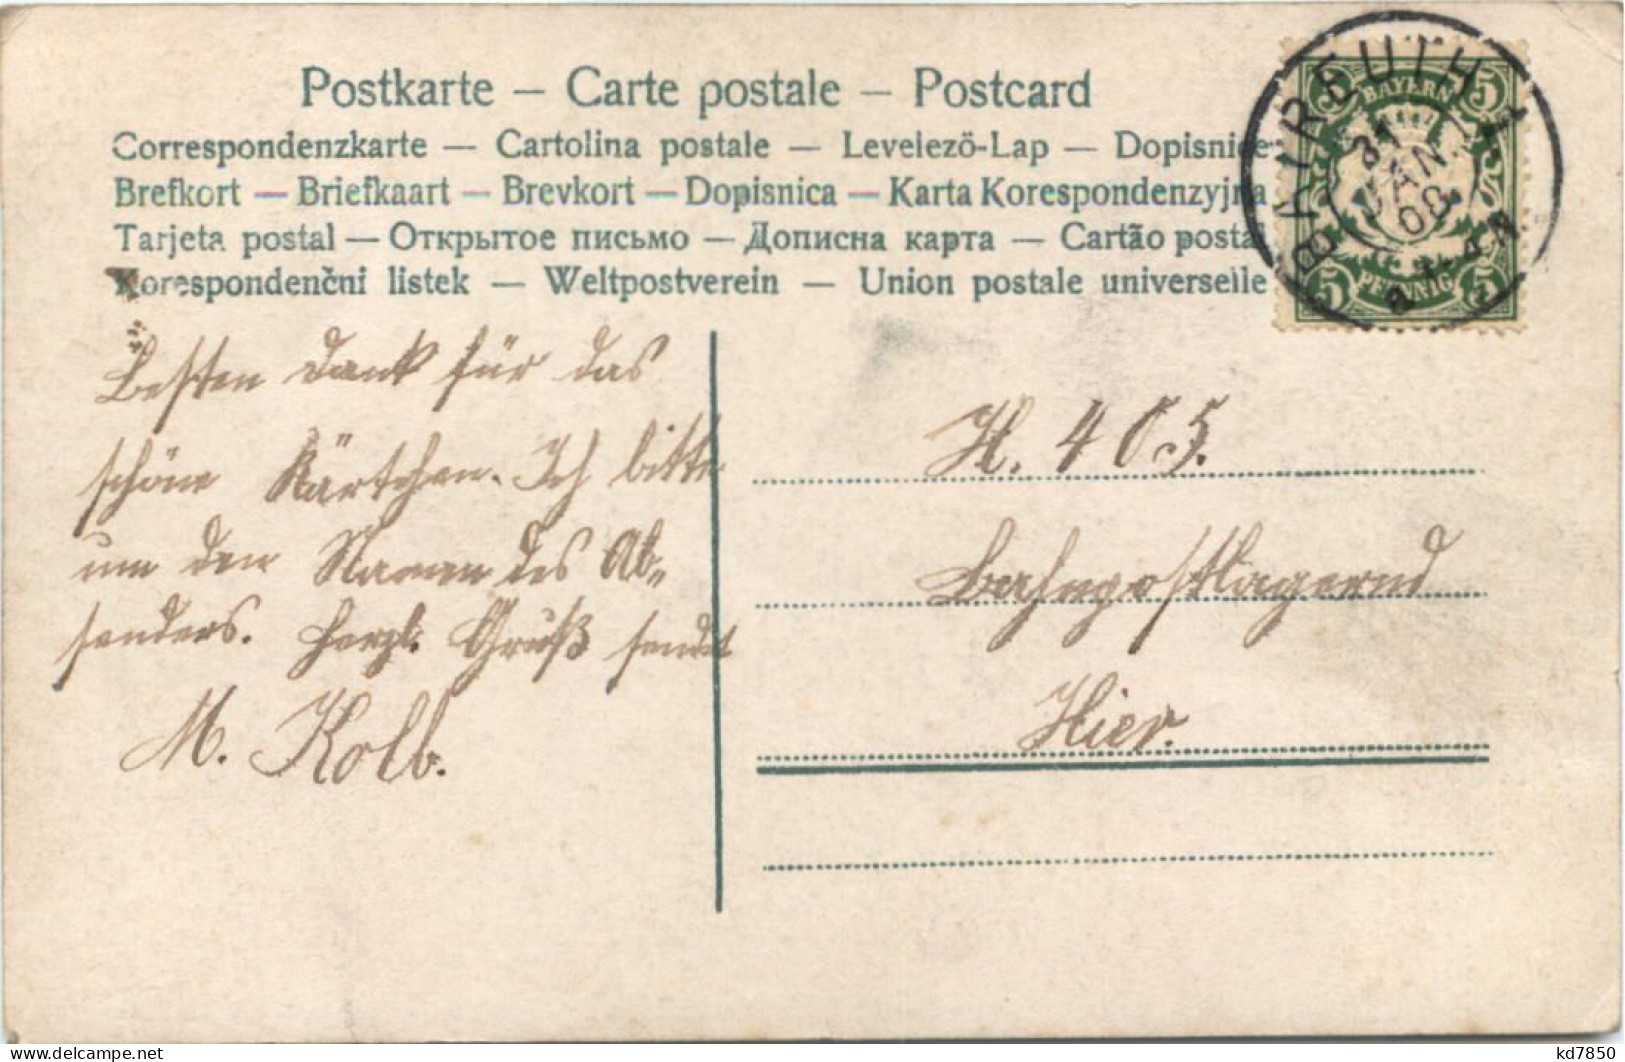 Postkarte — Carte postale — Postcard
Correspondenzkarte — Cartolina postale — Levelező-Lap — Dopisnice
Brefkort — Briefkaart — Brevkort — Dopisnica — Karta Korespondenzyjna
Tarjeta postal — Открытое письмо — Дописна карта — Cartão postal
Korespondenčni listek — Weltpostverein — Union postale universelle
BAIREUTH 1
31
JAN.
08
N.
5 BAYERN 5
5 PFENNIG 5
Besten Dank für das
schöne Kärtchen. Ich bitte
um den Namen des Ab-
senders. Herzl. Gruß sendet
M. Kolb.
H. 405.
Bahnpostlagernd
Hier.
kd7850